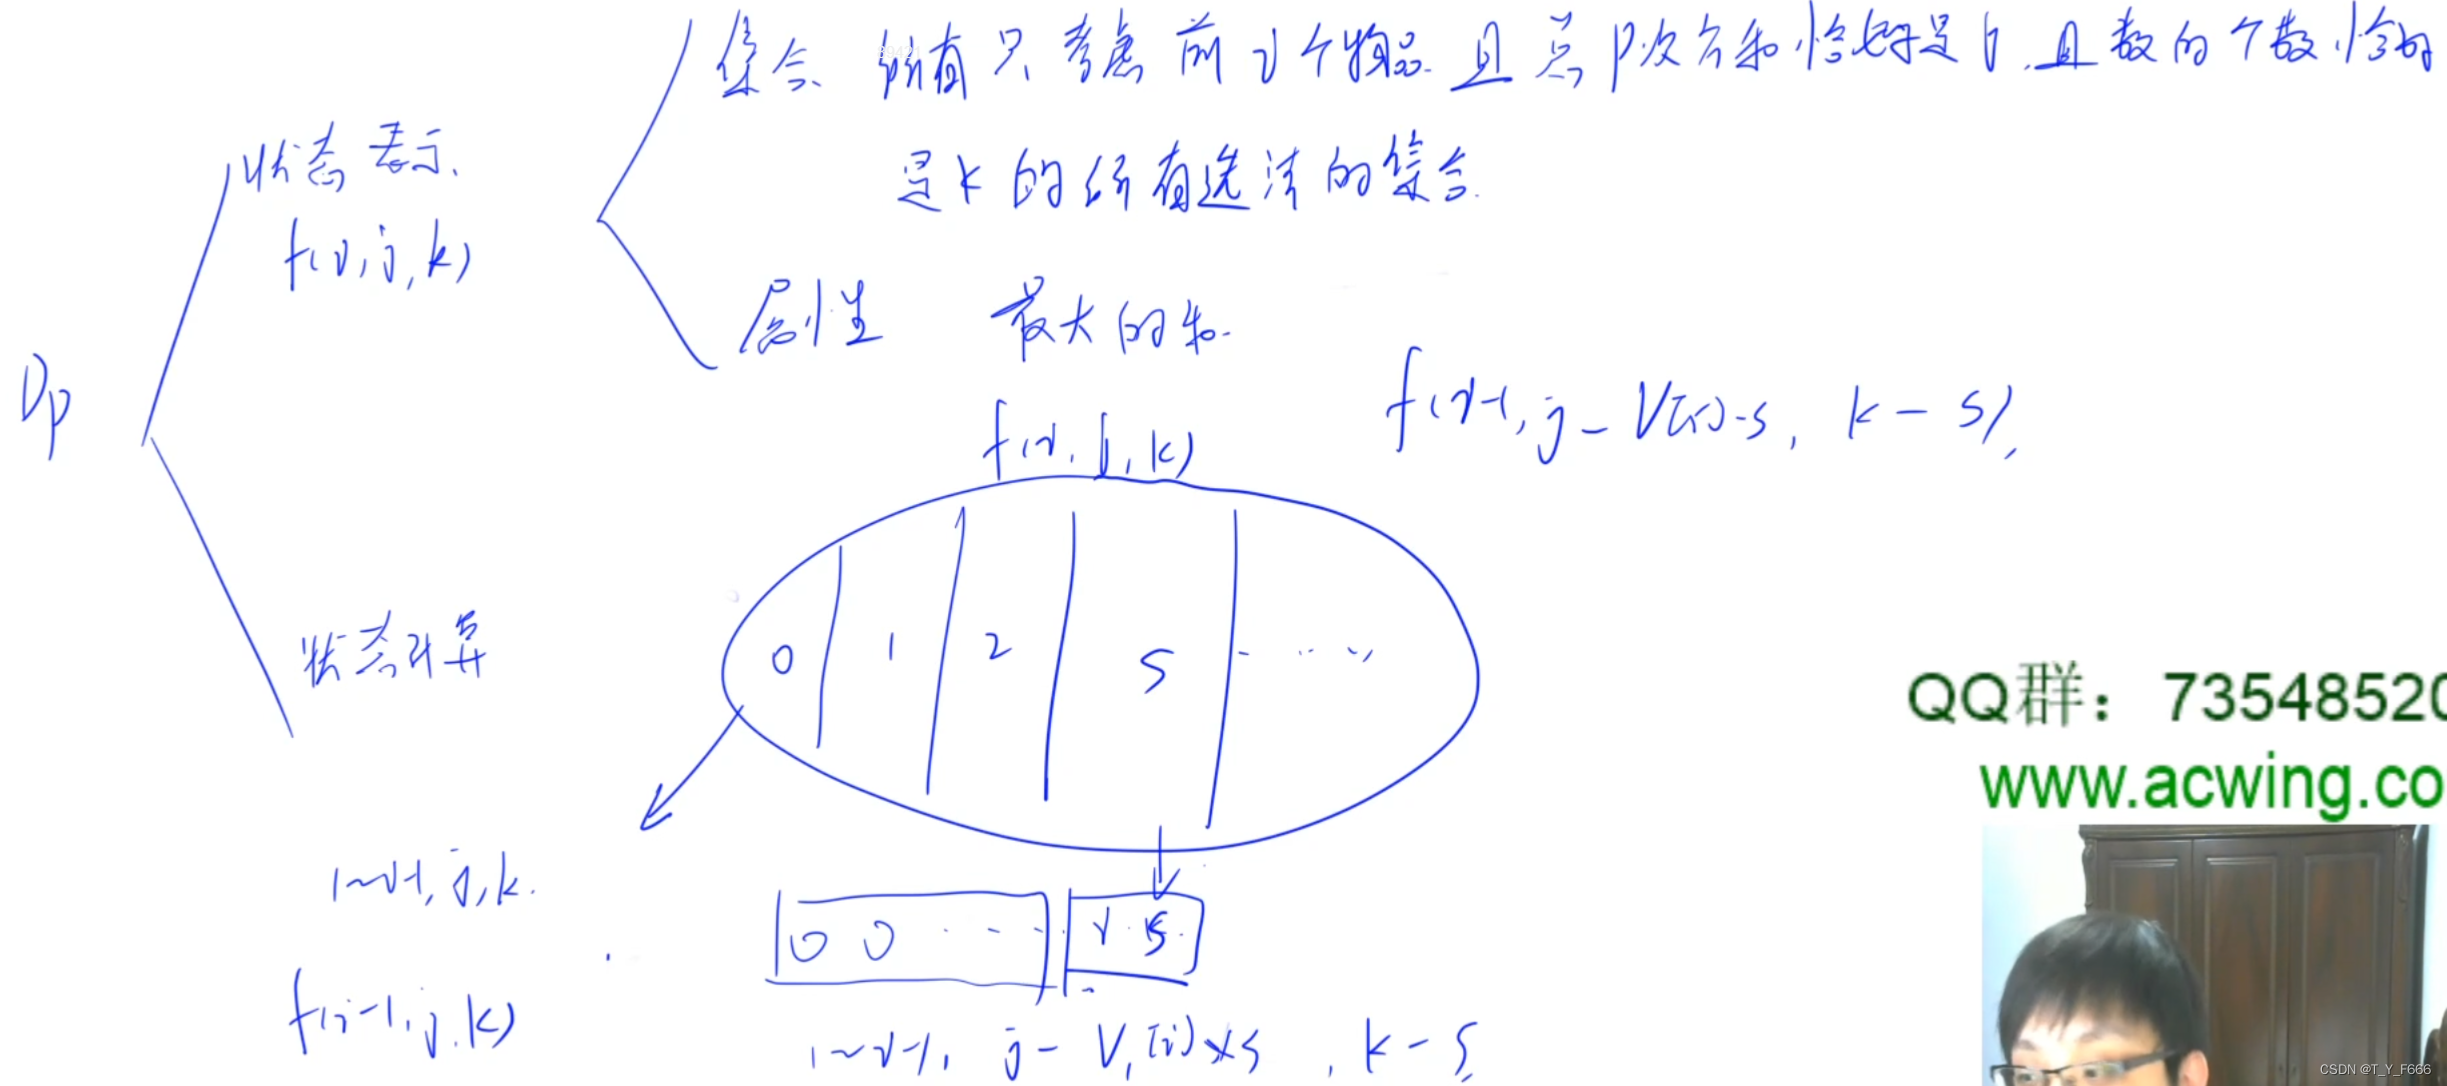 集合 所有只考虑前i个物品.且总p次方和恰好是j.且数的个数恰好
是k的所有选法的集合.
状态表示.
f(i,j,k)
属性 最大的和.
Dp
f(i,j,k)
f(i-1,j-V[i]·s, k-s),
0 1 2 s ...
状态计算
QQ群：73548520
www.acwing.co
1~i-1,j,k.
0 0 ... i s.
f(i-1,j,k)
1~i-1, j-V[i]×s, k-s
CSDN @T_Y_F666